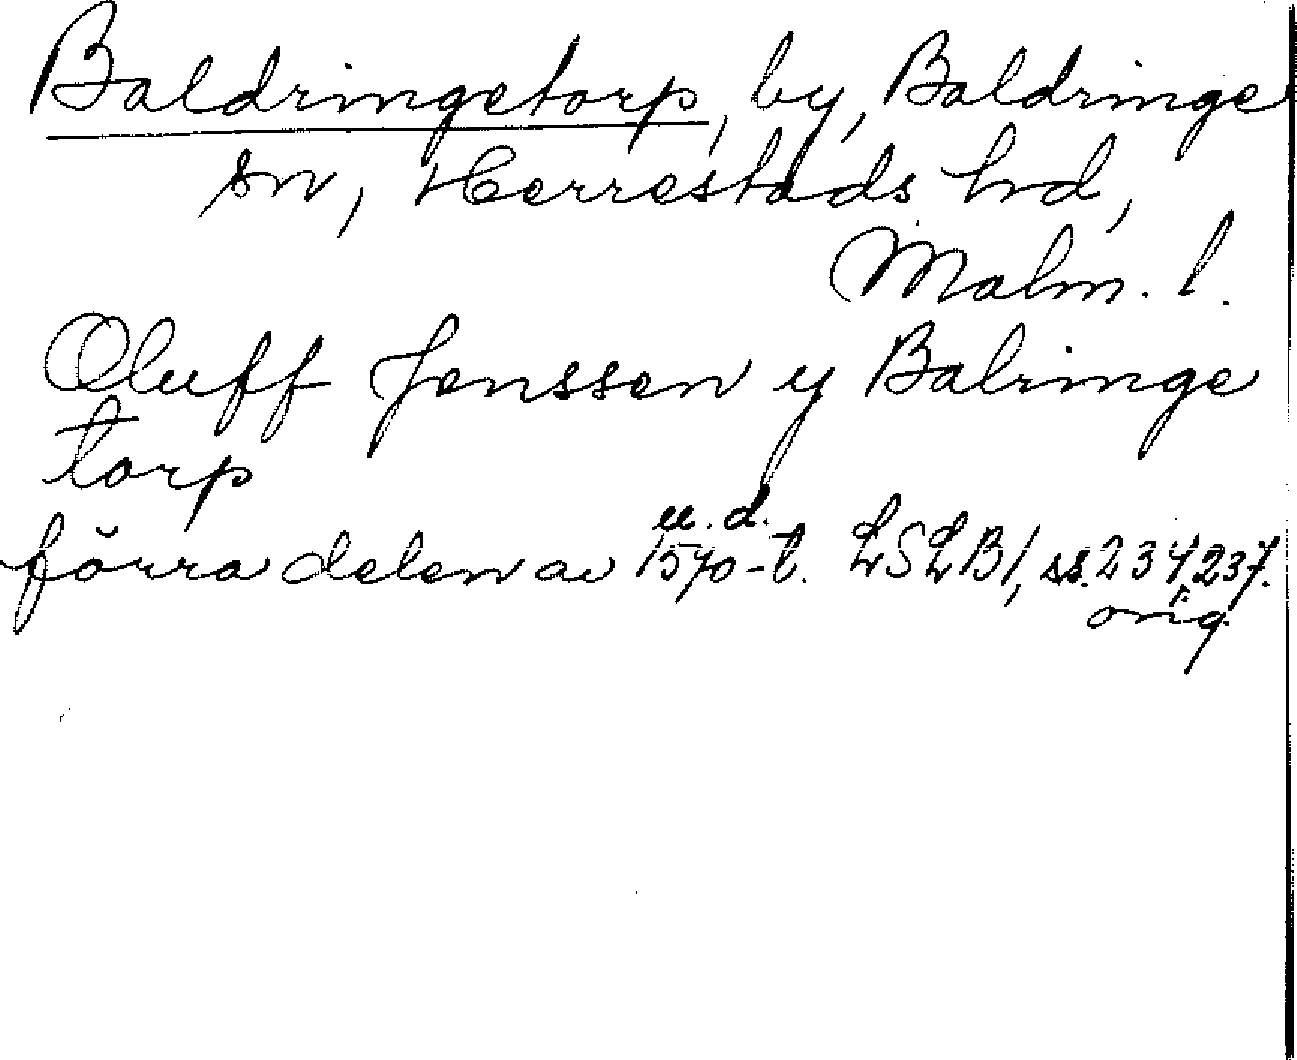 Baldringetorp, by, Baldringe
sn, Herrestads hd,
Malm. l.
Oluff Jenssen y Balringe
torp
u. d.
förra delen av 1570-t. LSLB1, ss. 234, 237.
orig.